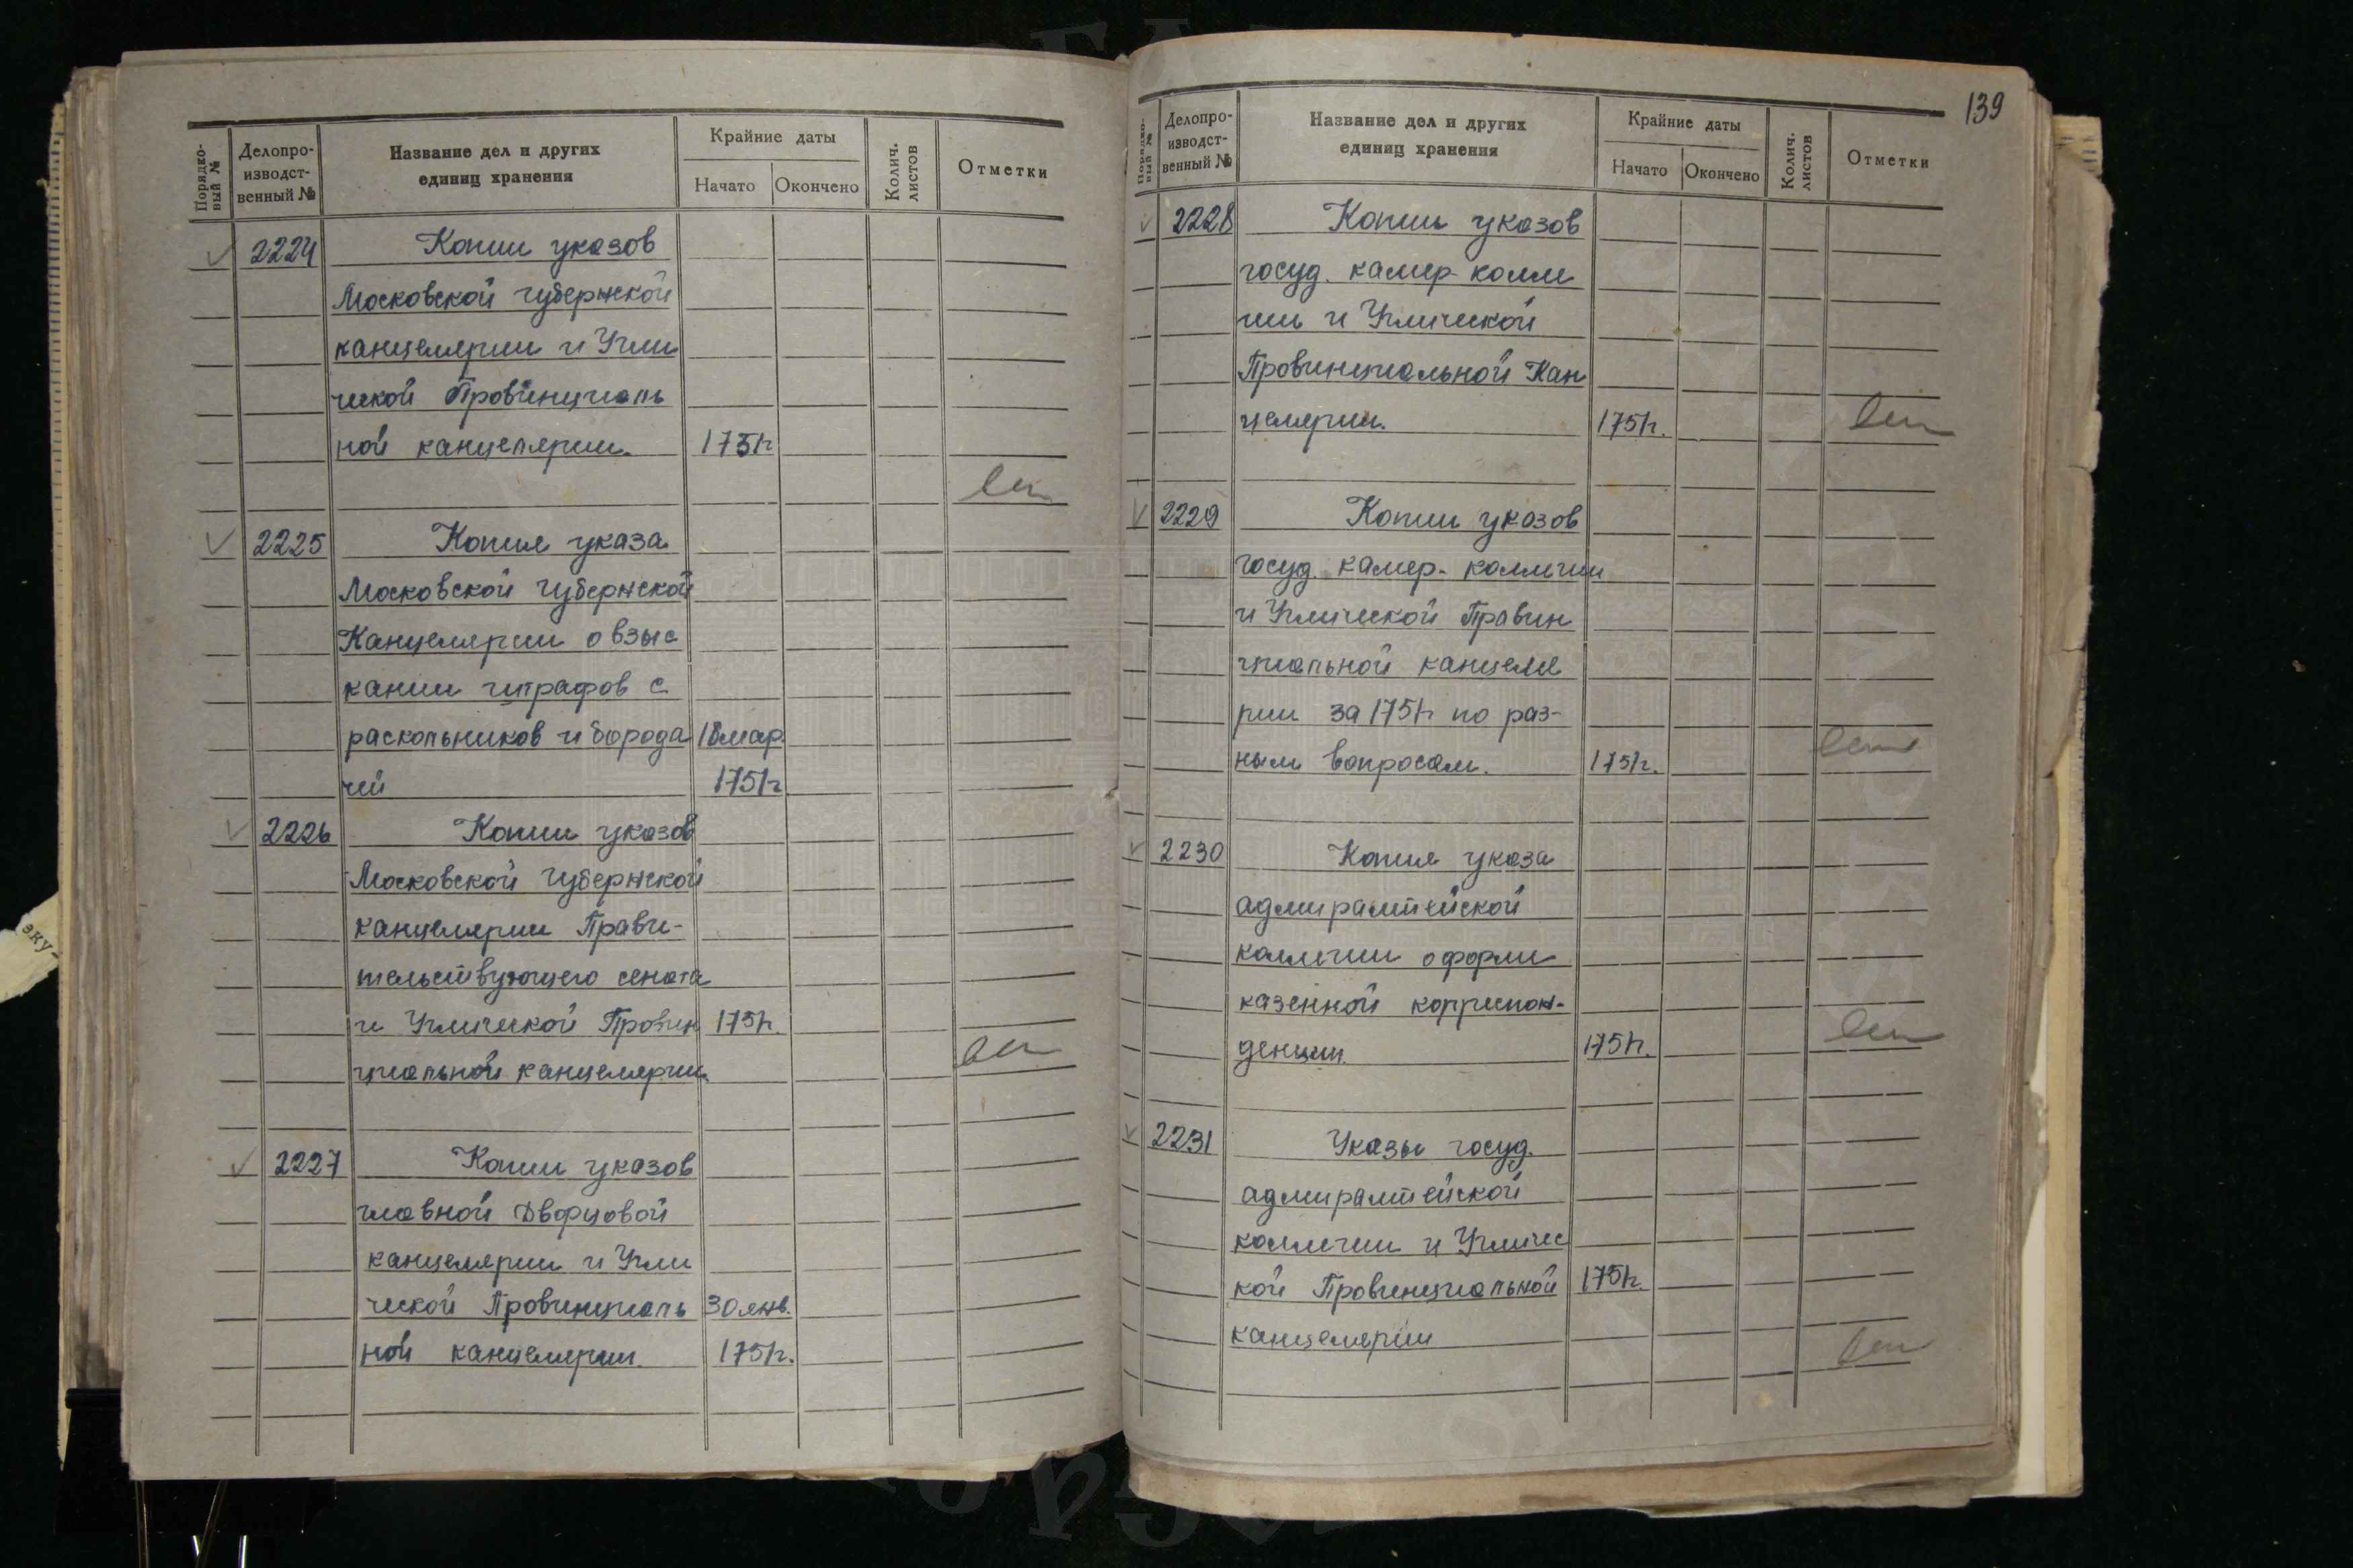 Порядко-
вый №
Делопро-
изводст-
венный №
Название дел и других
единиц хранения
Крайние даты
Начато
Окончено
Колич.
листов
Отметки
2224 Копии указов
Московской губернской
канцелярии и Угли
ческой Провинциаль
ной канцелярии. 1751г
2225 Копия указа
Московской губернской
Канцелярии о взыс
кании штрафов с
раскольников и борода 18 мар.
чей 1751г
2226 Копии указов
Московской губернской
канцелярии Прави-
тельствующего сената
и Углической Провин 1751г.
циальной канцелярии.
2227 Копии указов
главной Дворцовой
канцелярии и Угли
ческой Провинциаль 30 янв.
ной канцелярии. 1751г.
139
Порядко-
вый №
Делопро-
изводст-
венный №
Название дел и других
единиц хранения
Крайние даты
Начато
Окончено
Колич.
листов
Отметки
2228 Копии указов
госуд. камер-колле
гии и Углической
Провинциальной Кан
целярии. 1751г.
2229 Копии указов
госуд. камер-коллегии
и Углической Правин
циальной канцеля
рии за 1751г по раз-
ным вопросам. 1751г.
2230 Копия указа
адмиралтейской
коллегии о форме
казенной корреспон-
денции. 1751г.
2231 Указы госуд.
адмиралтейской
коллегии и Угличес
кой Провинциальной 1751г.
канцелярии